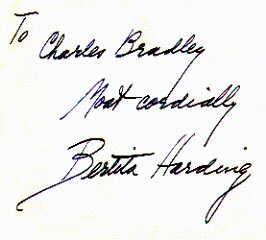 To
Charles Bradley
Most cordially
Bertita Harding